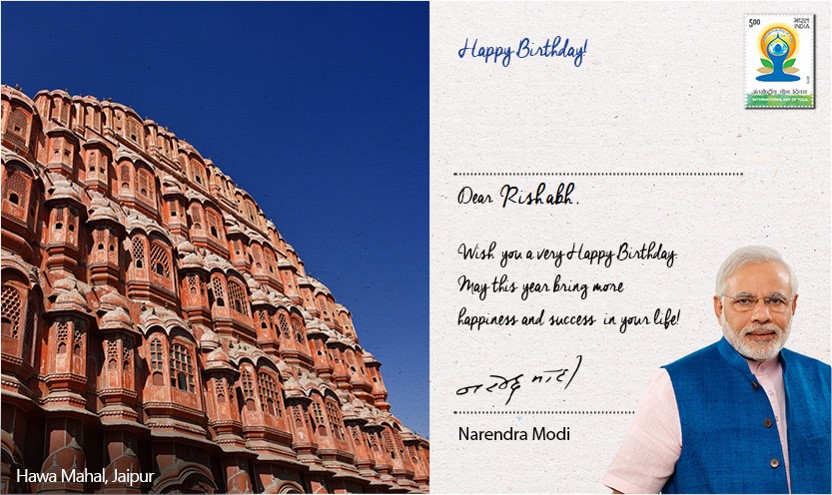 Happy Birthday!
500 भारत
INDIA
अंतर्राष्ट्रीय योग दिवस
INTERNATIONAL DAY OF YOGA
Dear Rishabh.
Wish you a very Happy Birthday.
May this year bring more
happiness and success in your life!
Narendra Modi
Hawa Mahal, Jaipur